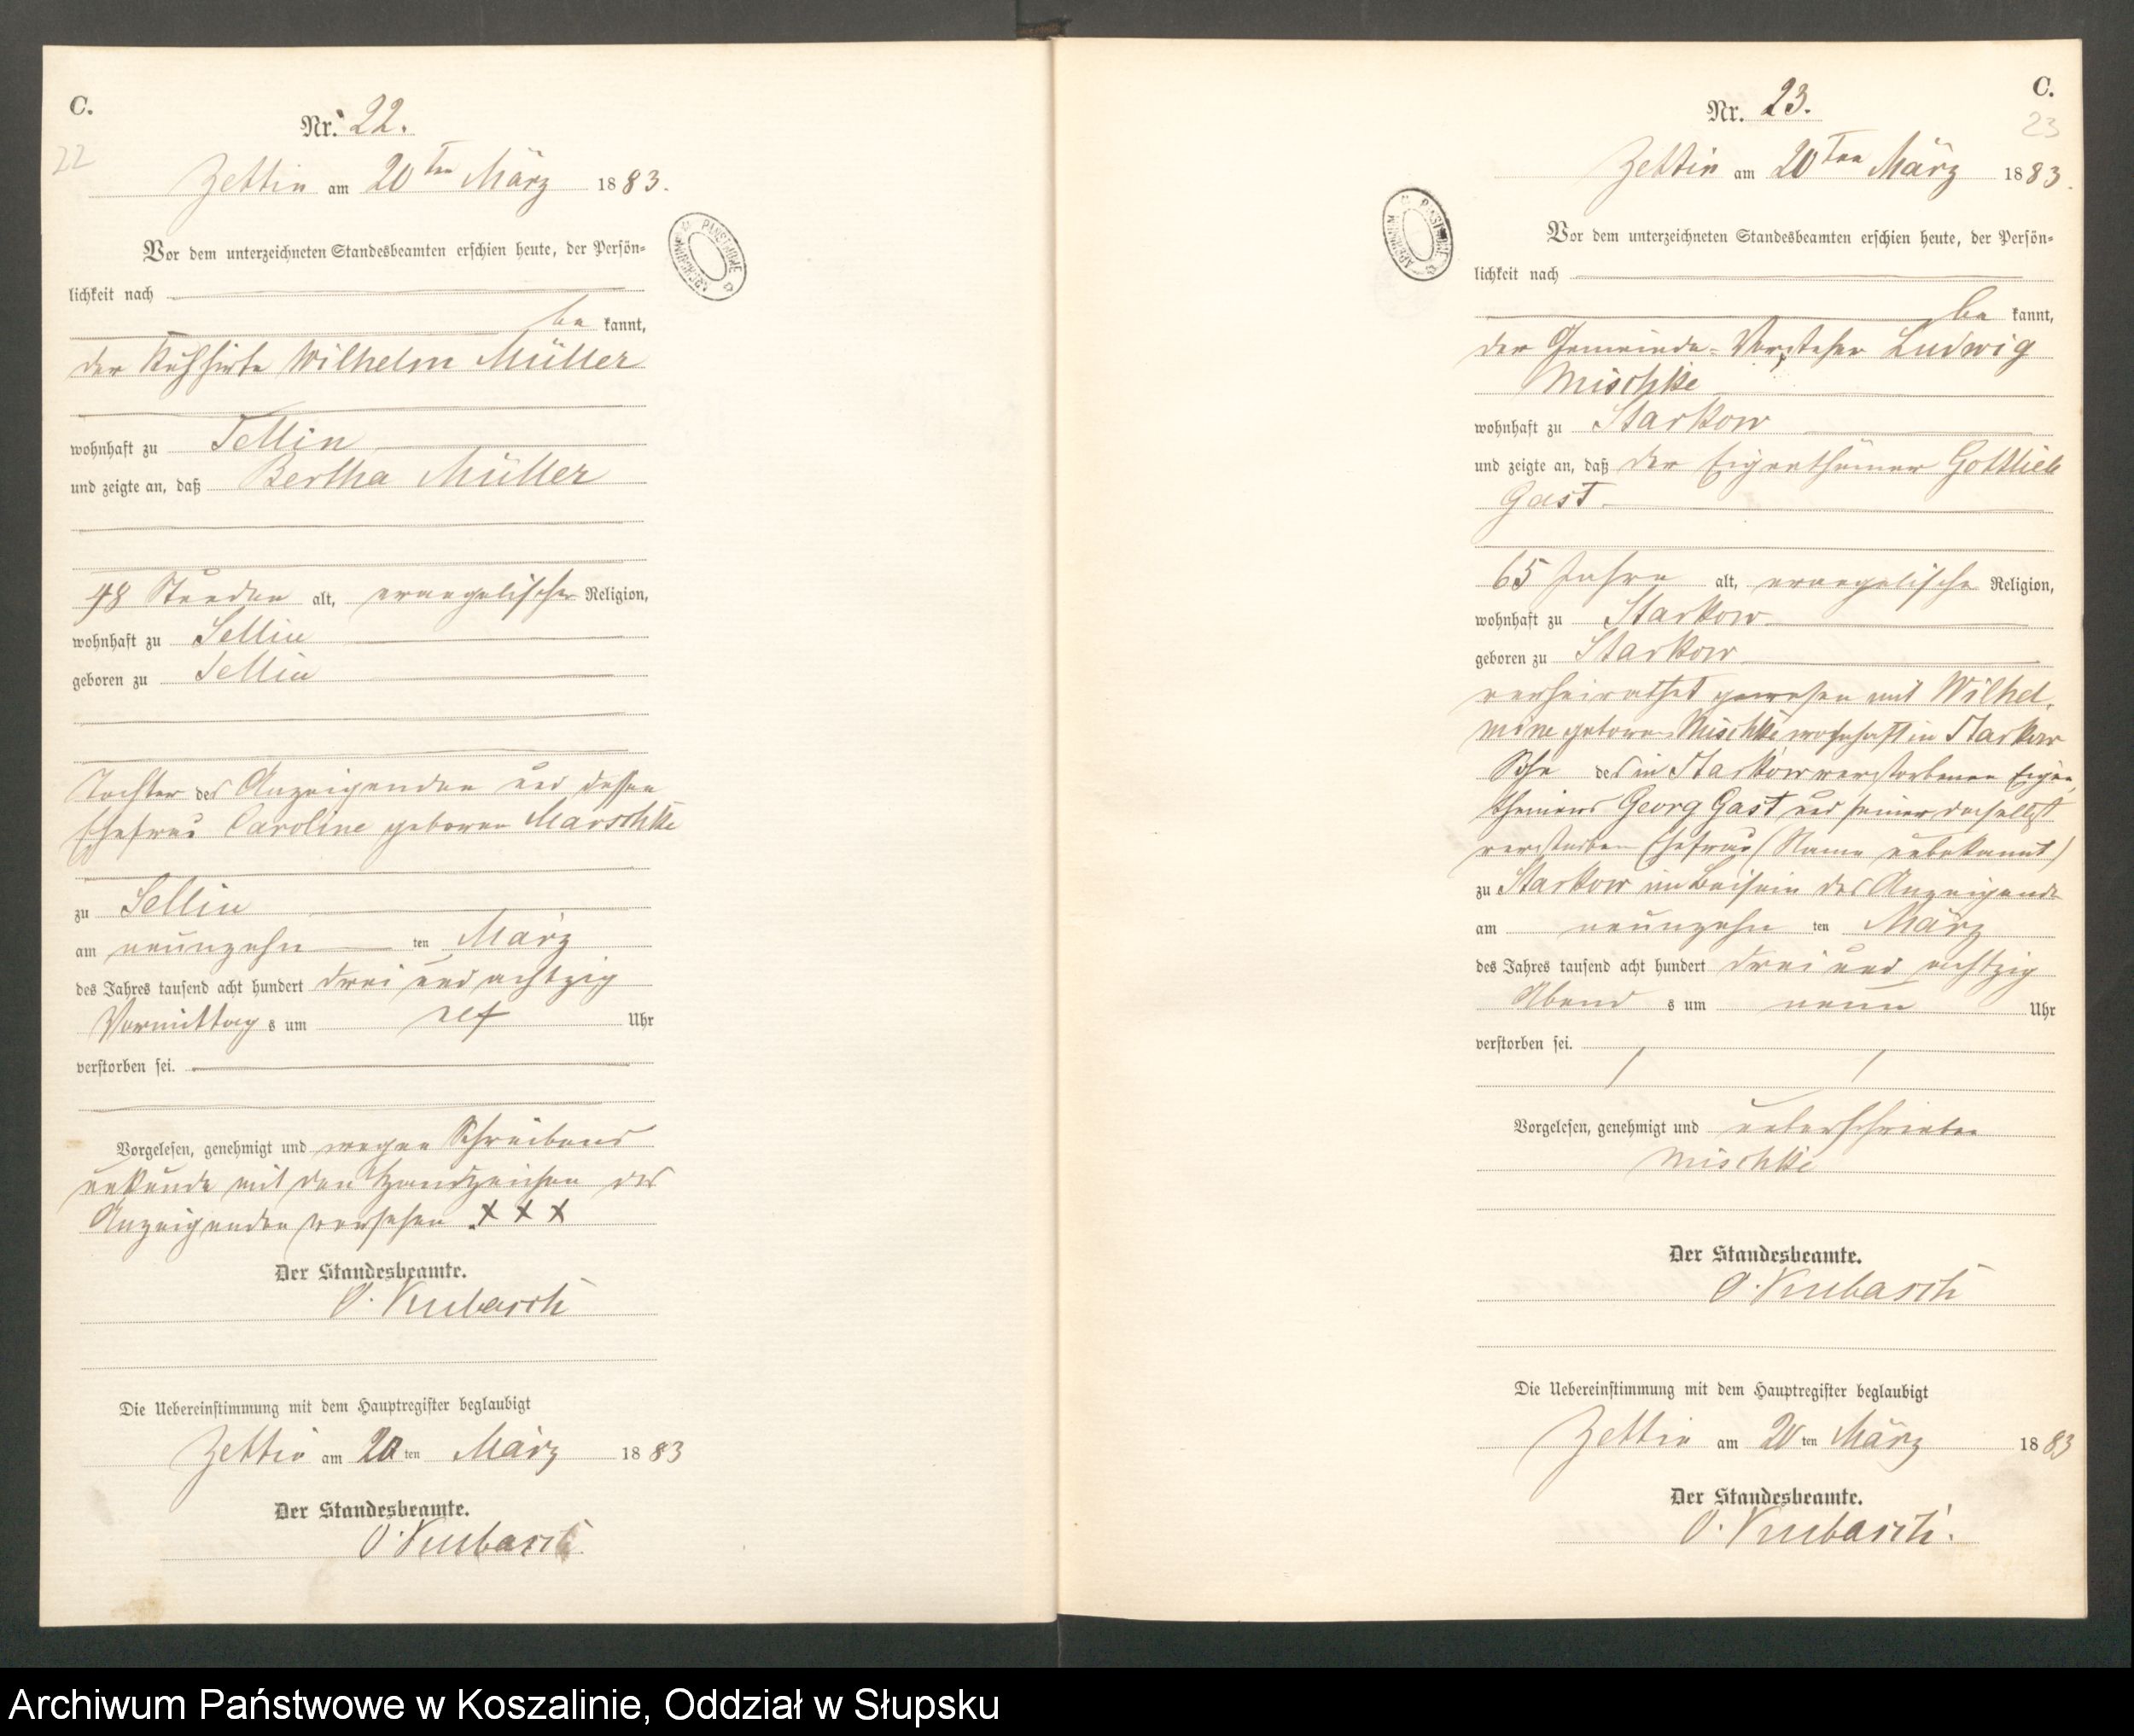 C.
22
Nr. 22.
Zettin am 20ten März 1883.
Vor dem unterzeichneten Standesbeamten erschien heute, der Persön-
lichkeit nach
be kannt,
der Kuhhirte Wilhelm Müller
wohnhaft zu Sellin
und zeigte an, daß Bertha Müller
48 Stunden alt, evangelischer Religion,
wohnhaft zu Sellin
geboren zu Sellin
Tochter des Anzeigenden und dessen
Ehefrau Caroline geborene Marschke
zu Sellin
am neunzehn ten März
des Jahres tausend acht hundert drei und achtzig
Vormittag s um elf Uhr
verstorben sei.
Vorgelesen, genehmigt und wegen Schreibens
unkunde mit den Handzeichen des
Anzeigenden versehen XXX
Der Standesbeamte.
O. Kubasch
Die Uebereinstimmung mit dem Hauptregister beglaubigt
Zettin am 20 ten März 1883
Der Standesbeamte.
O. Kubasch
C.
23
Nr. 23.
Zettin am 20ten März 1883.
Vor dem unterzeichneten Standesbeamten erschien heute, der Persön-
lichkeit nach
be kannt,
der Gemeinde-Vorsteher Ludwig
Mischke
wohnhaft zu Starkow
und zeigte an, daß der Eigenthümer Gottlieb
Gast
65 Jahre alt, evangelische Religion,
wohnhaft zu Starkow
geboren zu Starkow
verheirathet gewesen mit Wilhel-
mine geborene Mischke wohnhaft in Starkow
Sohn des in Starkow verstorbenen Eigen
thümers Georg Gast und seiner daselbst
verstorben Ehefrau (Name unbekannt)
zu Starkow im Beisein des Anzeigende
am neunzehn ten März
des Jahres tausend acht hundert drei und achtzig
Abend s um neun Uhr
verstorben sei.
Vorgelesen, genehmigt und unterschrieben
Mischke
Der Standesbeamte.
O. Kubasch
Die Uebereinstimmung mit dem Hauptregister beglaubigt
Zettin am 20 ten März 1883
Der Standesbeamte.
O. Kubasch.
Archiwum Państwowe w Koszalinie, Oddział w Słupsku